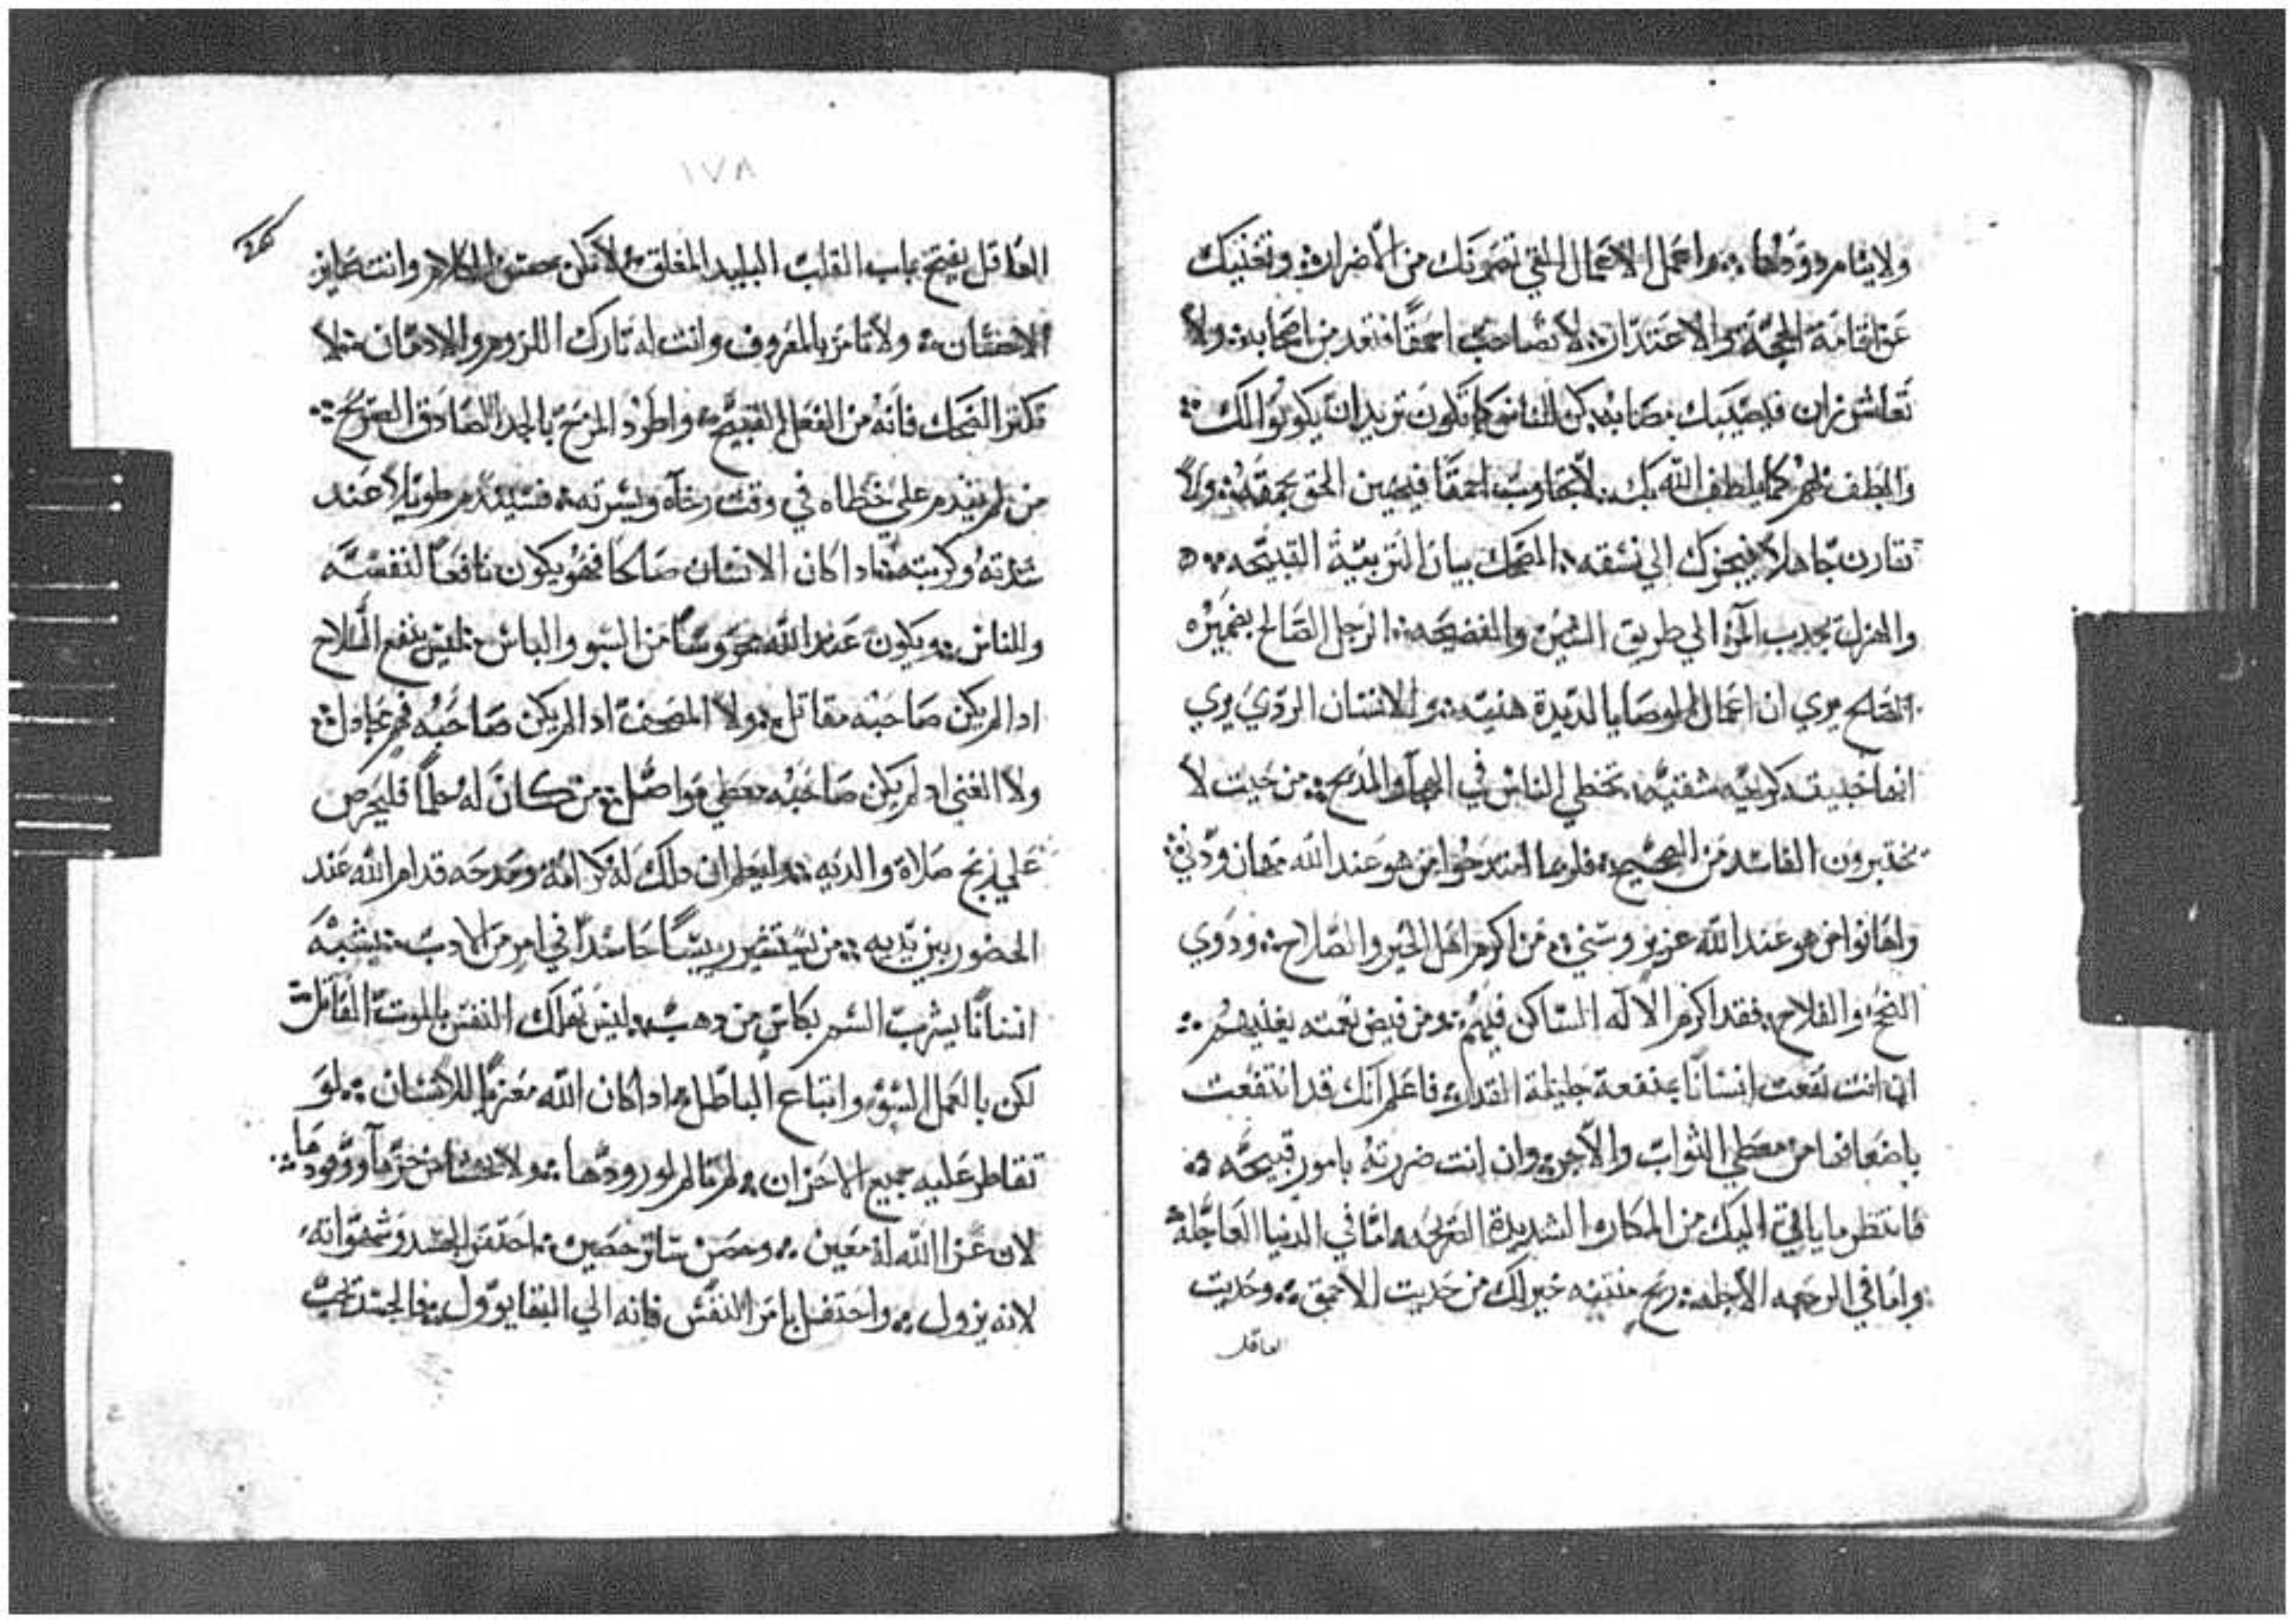 ولا يتامر وودها ؞ واعمل الاعمال التي تصونك من الاضرار ؞ وتغنيك
عن اقامة الحجة والاعتذار ؞ لا تصاحب احمقًا فتعد من اصحابه ؞ ولا
تعاشر زان فيصيبك مصابه ؞ كن للناس كما تكون تريد ان يكونوا لك ؞
والطف بهم كما يلطف الله بك ؞ لا تجاوب احمقًا فيهين الحق بحمقه ؞ ولا
تقارن جاهلا فيجرك الي نسقه ؞ الضحك بيان التربية القبيحه ؞
والهزل يجدب المرء الي طريق الشين والفضيحه ؞ الرجل الصالح بضميره
الصالح يري ان اعمال الوصايا لديدة هنيه ؞ والانسان الردي يري
انها خبيثه كريه شقيه ؞ تخطي الناس في الهجاء والمديح ؞ من حيت لا
يختبرون الفاسد من الصحيح ؞ فلربما امتدحوا من هو عند الله مهان ودني ؞
واهانوا من هو عند الله عزيز وسني ؞ من اكرم اهل الخير والصلاح ؞ ودوي
النجح والفلاح ؞ فقد اكرم الاله الساكن فيهم ؞ ومن فيض نعمته يغنيهم ؞
ان انت نفعت انسانًا بمنفعة جليلة المقدار ؞ فاعلم انك قد انتفعت
باضعافها من معطي الثواب والاجر ؞ وان انت ضررته بامور قبيحه ؞
فانتظر ما ياتي اليك من المكاره الشديدة ؞ اما في الدنيا العاجله ؞
واما في الاجله ؞ ريح منتنه خير لك من حديت الاحمق ؞ وحديت
العاقل
١٧٨
العاقل يفتح باب القلب البليد المغلق ؞ لا تكن حسن الكلام وانت
ولا تامر بالمعروف وانت له تارك اللزوم والادمان ؞ لا
تكثر الضحك فانه من الفعل القبيح ؞ واطرد المزح بالجد الصادق الصريح ؞
من لم يندم علي خطاه في وقت رخاه ويسرته ؞ فسيندم طويلا عند
شدته وكربته ؞ ادا كان الانسان صالحا فهو يكون نافعًا لنفسه
وللناس ؞ ويكون عند الله محروسًا من السو والباس ؞ ليس ينفع السلاح
ادا لم يكن صاحبه مقاتل ؞ ولا المصحف ادا لم يكن صاحبه فهم مجادل ؞
ولا الغني اد لم يكن صاحبه معطي مواصل ؞ من كان له علمًا فليحرص
علي ربح صلاة والديه ؞ وليعلم ان دلك له كرامة ومدحه قدام الله عند
الحضور بين يديه ؞ من يستشير رييسًا حاسدًا في امر من الادب ؞ يشبه
انسانًا يشرب السم بكاس من دهب ؞ ليس تهلك النفس بالموت القاتل
لكن بالعمل السوء واتباع الباطل ؞ ادا كان الله معزيًا للانسان ؞ لو
تقاطر عليه جميع الاحزان ؞ لم يتالم لورودها ؞ ولا يخشا من حرها ووقودها ؞
لان عزا الله له معين ؞ وحصن ساتر حصين ؞ احتقر الجسد وشهواته
لانه يزول ؞ واحتفل بامر النفس فانه الي البقا يوول ؞ فالجسد تحت